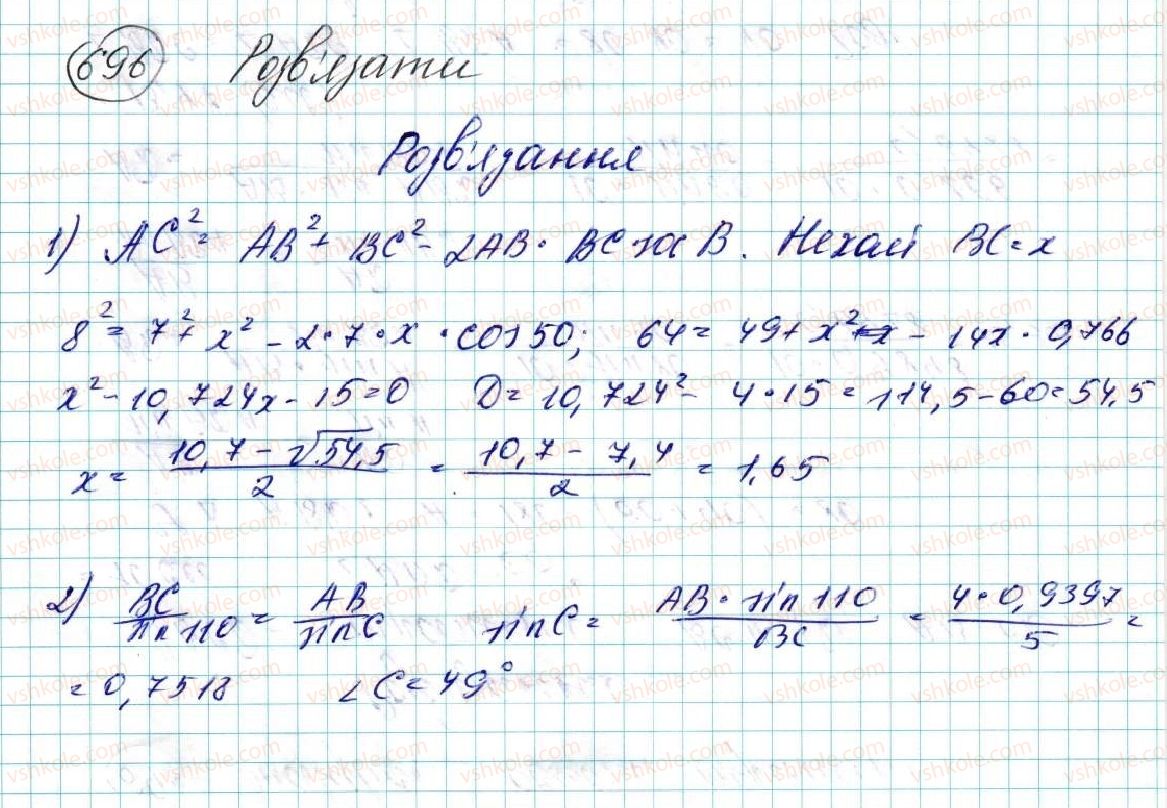 696 Розв'язати
Розв'язання
1) AC² = AB² + BC² - 2AB · BC cos B. Нехай BC = x
8² = 7² + x² - 2·7·x·cos50; 64 = 49 + x² - 14x · 0,766
x² - 10,724x - 15 = 0 D = 10,724² - 4·15 = 114,5 - 60 = 54,5
x = (10,7 - √54,5)/2 = (10,7 - 7,4)/2 = 1,65
2) BC/sin 110 = AB/sin C sin C = AB · sin 110/BC = 4 · 0,9397/5 =
= 0,7518 ∠C = 49°
vshkole.com